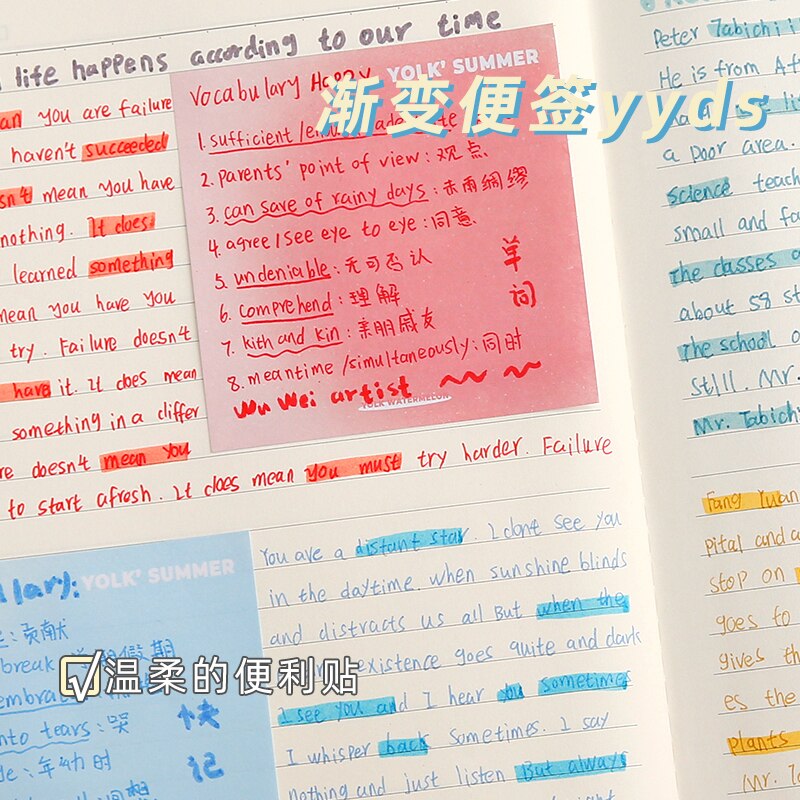 life happens according to our time
an you are failure
haven't succeeded
sn't mean you have
nothing. It does
learned something
mean you have you
try. Failure doesn't
have it. It does mean
something in a differ
re doesn't mean you
to start afresh. It does mean you must try harder. Failure
YOLK' SUMMER
Vocabulary Happy
渐变便签yyds
1. sufficient /
2. parents' point of view : 观点
3. can save of rainy days : 未雨绸缪
4. agree / see eye to eye : 同意
5. undeniable : 无可否认
6. comprehend : 理解
7. kith and kin : 亲朋戚友
8. meantime /simultaneously : 同时
单
词
Wu Wei artist
YOLK WATERMELON
YOLK' SUMMER
lary:
: 贡献
break
假期
embrac
into tears : 哭
de : 年幼时
快
记
温柔的便利贴
You are a distant star. I dont see you
in the daytime. when sunshine blinds
and distracts us all But when the
existence goes quite and dark
I see you and I hear you sometimes
I whisper back Sometimes. I say
nothing and just listen But always
Peter Tabichi i
He is from Af
a poor area.
science teach
small and fa
the classes a
about 58 st
the school o
still. Mr.
Mr. Tabich
Fang Yuan
pital and a
stop on
goes to
gives th
es the
plants
Mr. Ta